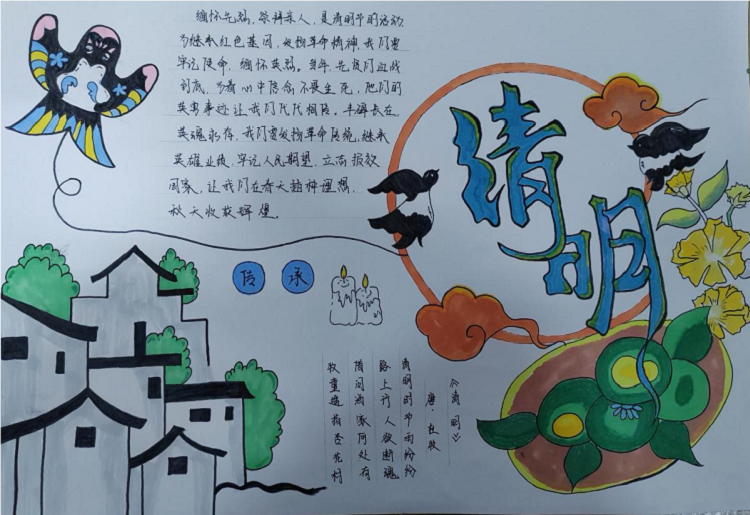 缅怀先烈，祭拜亲人，是清明节的活动
为继承红色基因，发扬革命精神，我们要
牢记使命，缅怀英烈。当年，先辈们血战
到底，为着心中信念，不畏生死，他们的
英勇事迹让我们代代相传。丰碑长在，
英魂永存，我们要发扬革命传统，继承
英雄业绩，牢记人民期望，立志报效
国家，让我们在春天播种理想，
秋天收获辉煌。
清明
传承
《清明》
唐·杜牧
清明时节雨纷纷
路上行人欲断魂
借问酒家何处有
牧童遥指杏花村